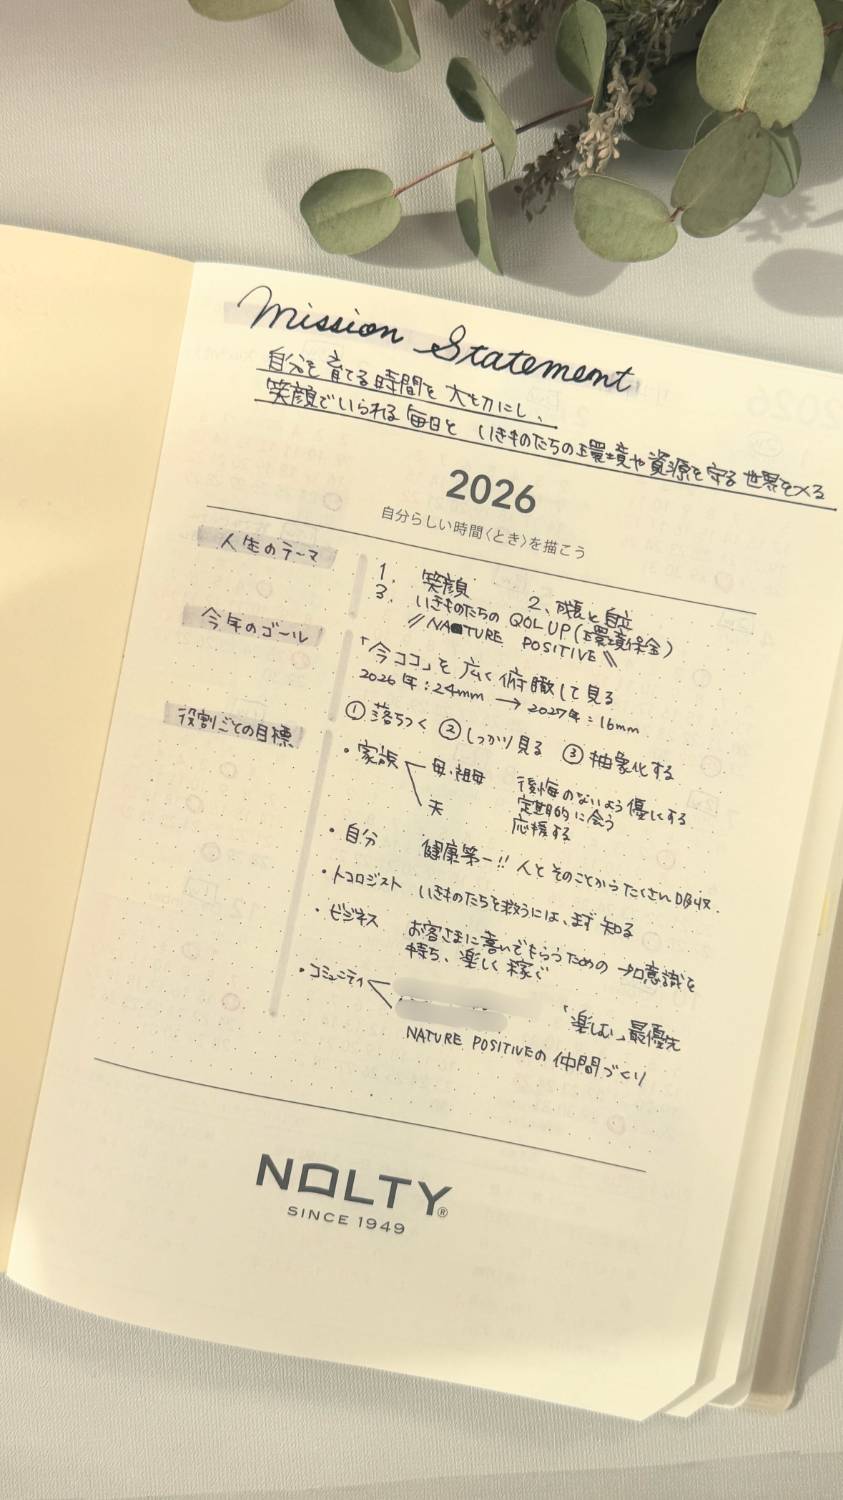 Mission Statement
自分を育てる時間を大切にし、
笑顔でいられる毎日と いきものたちの環境や資源を守る世界をつくる
2026
自分らしい時間〈とき〉を描こう
人生のテーマ
1. 笑顔 2、成長と自立
3. いきものたちの QOL UP（環境保全）
// NATURE POSITIVE \\
今年のゴール
「今ココ」を広く俯瞰して見る
2026年：24mm → 2027年：16mm
① 落ちつく ② しっかり見る ③ 抽象化する
役割ごとの目標
・家族 母・祖母 後悔のないよう優しくする
定期的に会う
夫 応援する
・自分 健康第一!! 人とそのことからたくさんDB収.
・トコロジスト いきものたちを救うには、まず知る
・ビジネス お客さまに喜んでもらうための 意識を
持ち、楽しく稼ぐ
・コミュニティ 「楽しむ」最優先
NATURE POSITIVEの仲間づくり
NOLTY®
SINCE 1949